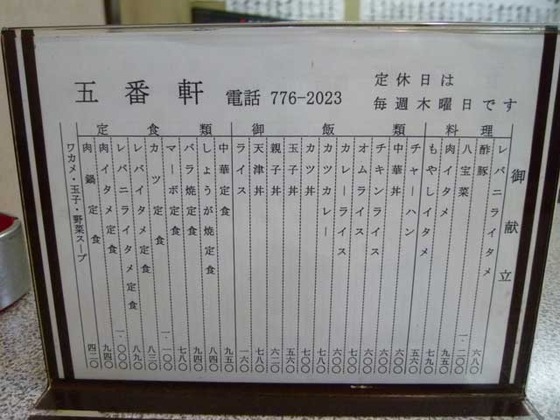 五番軒 電話 776-2023
定休日は
毎週木曜日です
御献立
料理
レバニライタメ 六八〇
酢豚 一、二〇〇
八宝菜
肉イタメ 九五〇
もやしイタメ 七九〇
御飯類
チャーハン 五六〇
中華丼 六〇〇
チキンライス 六〇〇
オムライス 六〇〇
カレーライス
カツカレー 七〇〇
カツ丼 七〇〇
玉子丼 五六〇
親子丼 六二〇
天津丼 七八〇
ライス 一六〇
定食類
中華定食 九五〇
しょうが焼定食 八四〇
バラ焼定食 九四〇
マーボ定食 七八〇
カツ定食 一、一〇〇
レバイタメ定食 八三〇
レバニライタメ定食 八九〇
肉イタメ定食 一、〇〇〇
肉鍋定食 九四〇
ワカメ・玉子・野菜スープ 四二〇